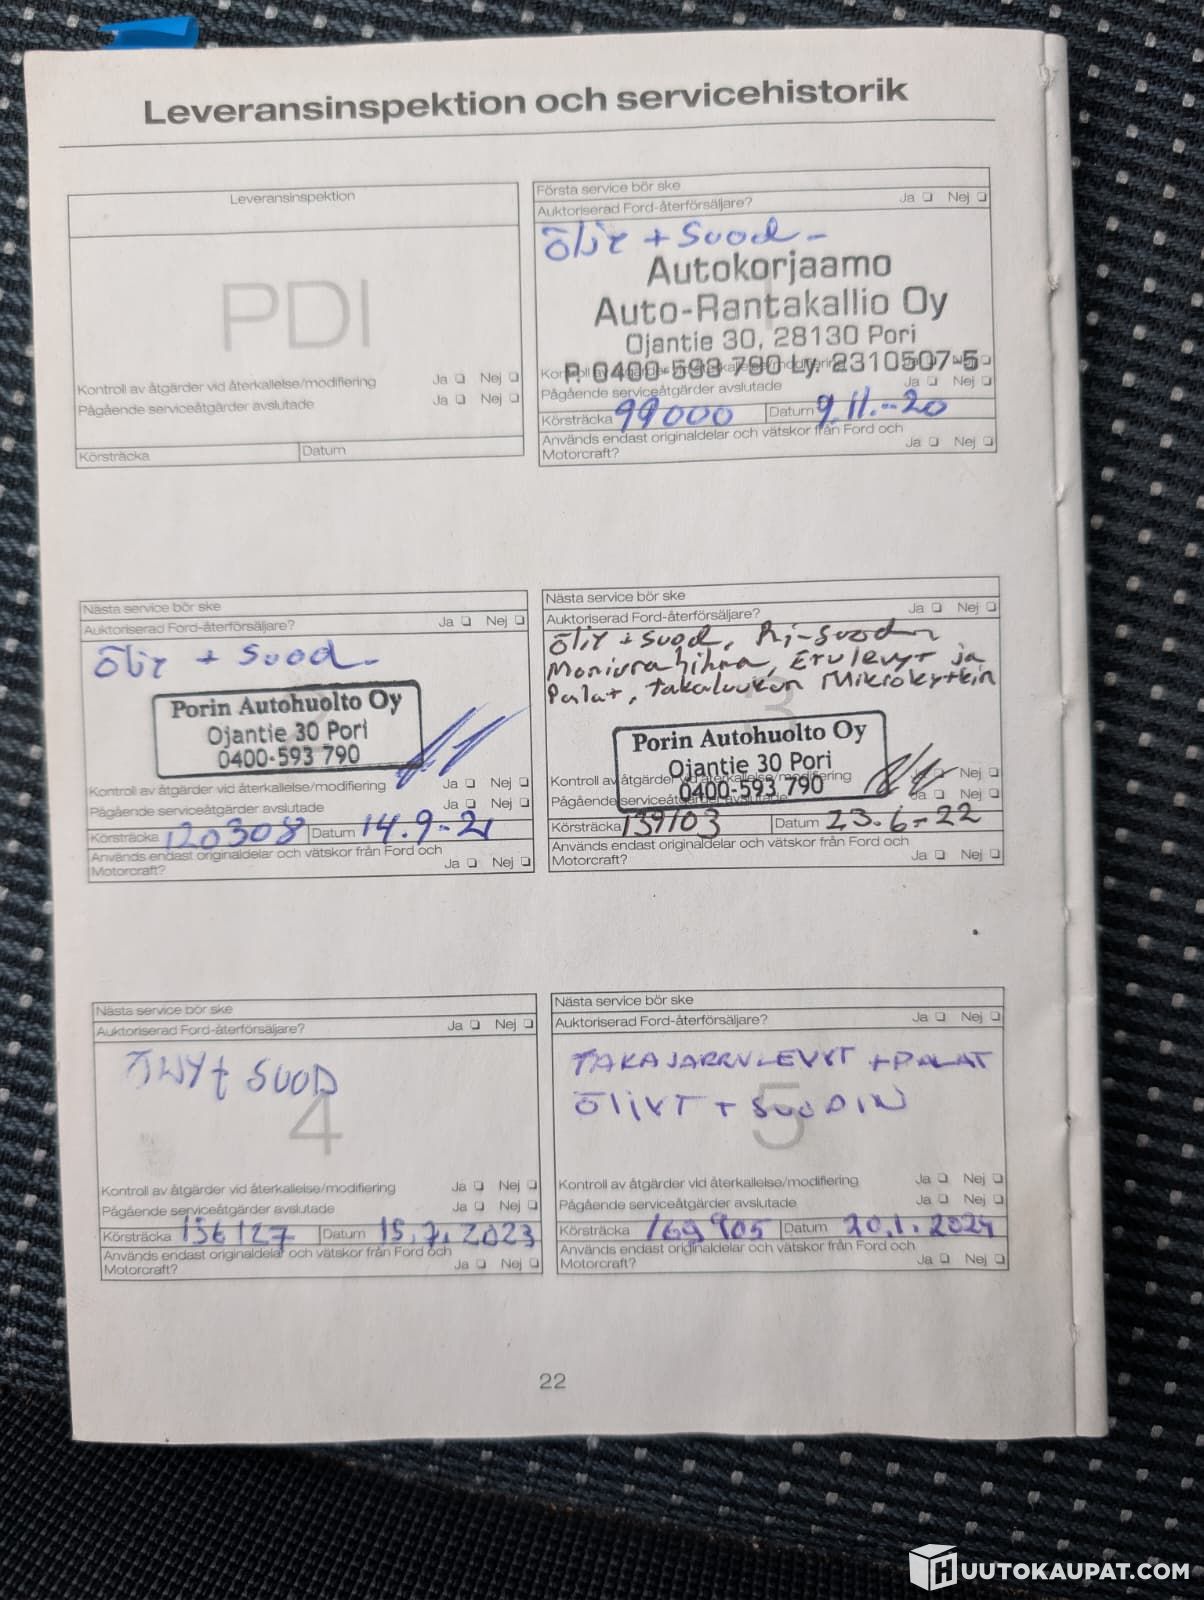 Leveransinspektion och servicehistorik
Leveransinspektion
PDI
Kontroll av åtgärder vid återkallelse/modifiering Ja Nej
Pågående serviceåtgärder avslutade Ja Nej
Körsträcka Datum
Första service bör ske
Auktoriserad Ford-återförsäljare? Ja Nej
Öljt + Suod -
Autokorjaamo
Auto-Rantakallio Oy
Ojantie 30, 28130 Pori
P. 0400-593 790 Ly. 2310507-5
Pågående serviceåtgärder avslutade Ja Nej
Körsträcka 99000 Datum 9.11.-20
Används endast originaldelar och vätskor från Ford och
Motorcraft? Ja Nej
Nästa service bör ske
Auktoriserad Ford-återförsäljare? Ja Nej
Öljt + Suod -
Porin Autohuolto Oy
Ojantie 30 Pori
0400-593 790
Kontroll av åtgärder vid återkallelse/modifiering Ja Nej
Pågående serviceåtgärder avslutade Ja Nej
Körsträcka 120308 Datum 14.9.-21
Används endast originaldelar och vätskor från Ford och
Motorcraft? Ja Nej
Nästa service bör ske
Auktoriserad Ford-återförsäljare? Ja Nej
Öljt + Suod,
Moniurahihna, Etulevyt ja
Palat, takaluukun Mikrokytkin
3
Porin Autohuolto Oy
Ojantie 30 Pori
0400-593 790
Kontroll av åtgärder vid återkallelse/modifiering Ja Nej
Pågående serviceåtgärder avslutade Ja Nej
Körsträcka 139103 Datum 23.6-22
Används endast originaldelar och vätskor från Ford och
Motorcraft? Ja Nej
Nästa service bör ske
Auktoriserad Ford-återförsäljare? Ja Nej
SUOD
4
Kontroll av åtgärder vid återkallelse/modifiering Ja Nej
Pågående serviceåtgärder avslutade Ja Nej
Körsträcka 156127 Datum 15.7.2023
Används endast originaldelar och vätskor från Ford och
Motorcraft? Ja Nej
Nästa service bör ske
Auktoriserad Ford-återförsäljare? Ja Nej
TAKAJARRULEVYT + PALAT
ÖLJYT + SUODIN
5
Kontroll av åtgärder vid återkallelse/modifiering Ja Nej
Pågående serviceåtgärder avslutade Ja Nej
Körsträcka 169905 Datum 20.1.2024
Används endast originaldelar och vätskor från Ford och
Motorcraft? Ja Nej
22
HUUTOKAUPAT.COM